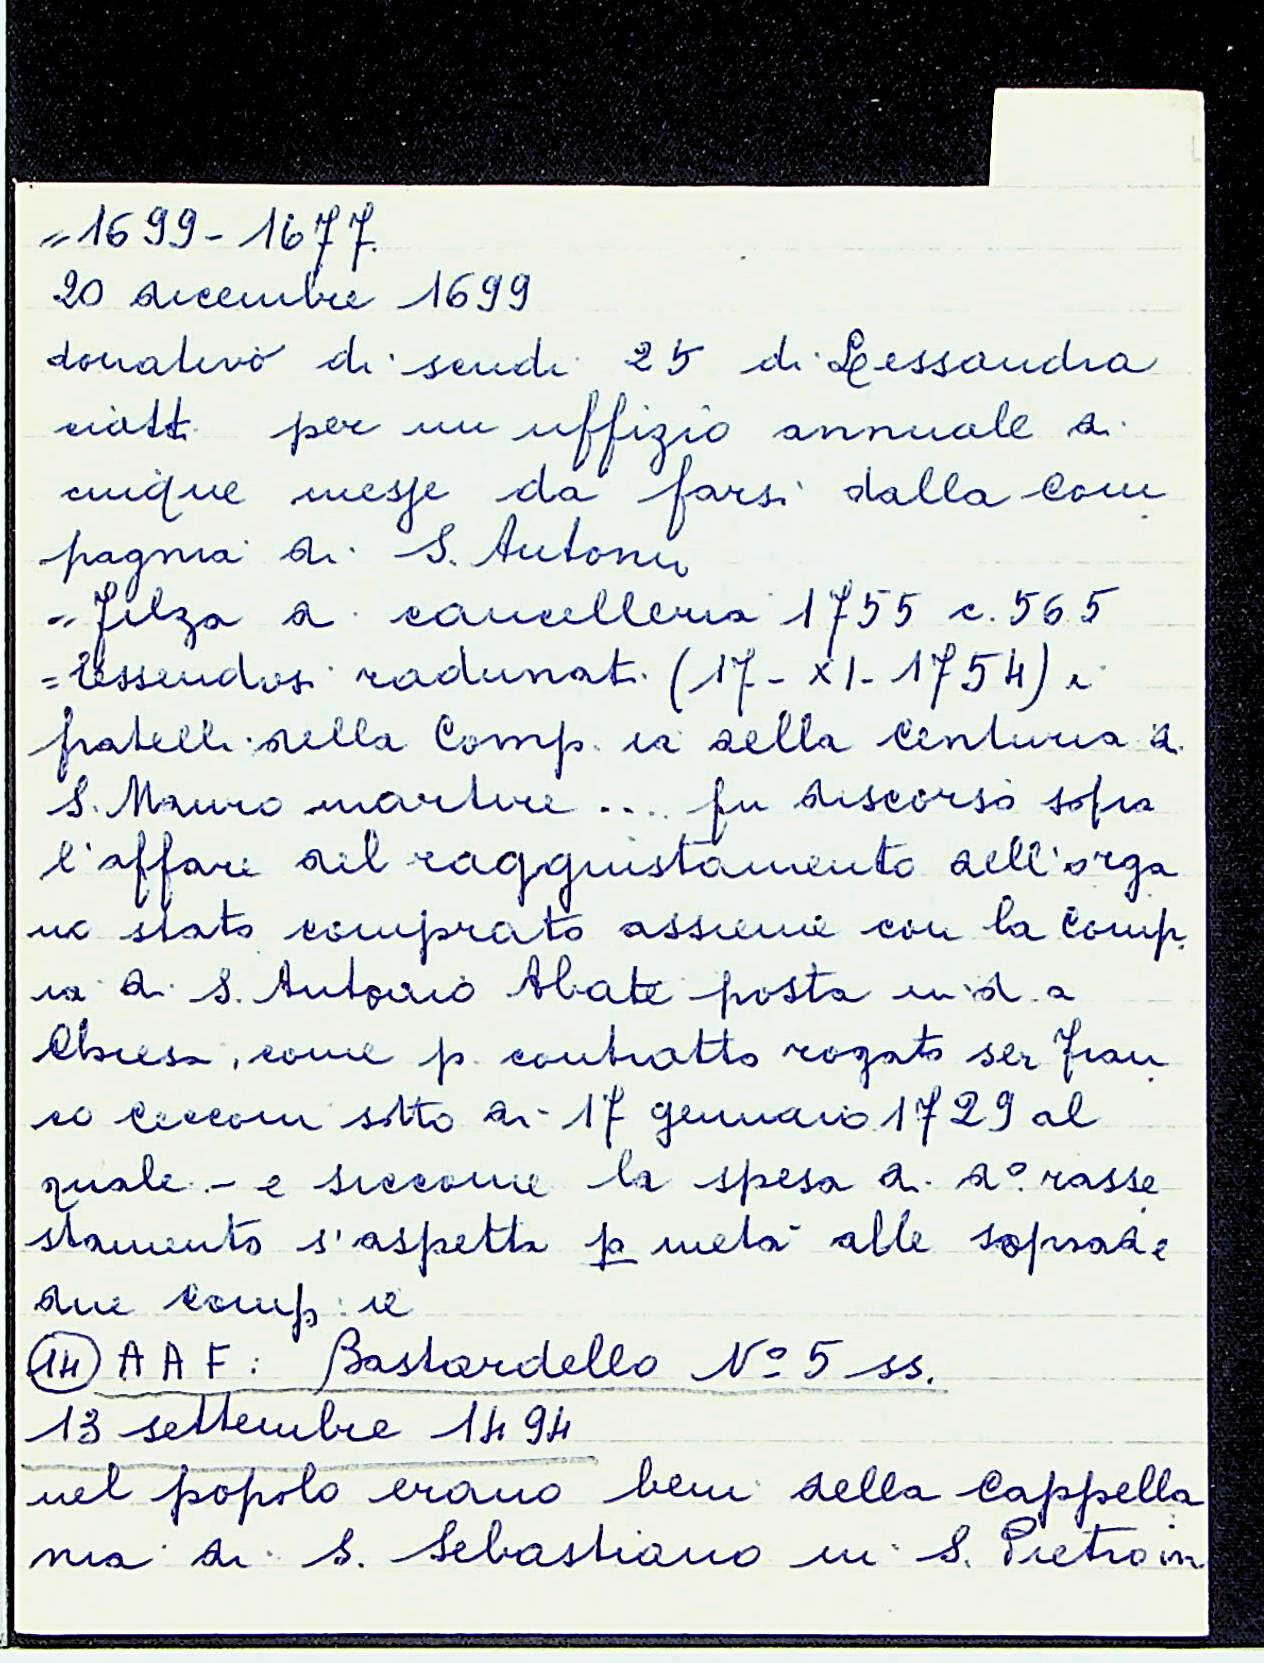 = 1699 - 1677.
20 dicembre 1699
donativo di scudi 25 di Lessandra
ciotti per un uffizio annuale di
cinque messe da farsi dalla Com
pagnia di S. Antonio
= Filza di cancelleria 1755 c. 565
= Essendosi radunati (17 - XI - 1754) i
fratelli della Comp. ia della Centuria di
S. Mauro martire .... fu discorso sopra
l'affare del raggiustamento dell'orga
no stato comprato assieme con la Comp.
ia di S. Antonio Abate posta in d. a
Chiesa, come p. contratto rogato ser Fran
co Cecconi sotto di - 17 gennaio 1729 al
quale - e siccome la spesa di d.º rasse
stamento s'aspetta p metà alle sopradde
due comp. ie
(14) A A F : Bastardello Nº 5 ss.
13 settembre 1494
nel popolo erano beni della Cappella
nia di S. Sebastiano in S. Pietro in